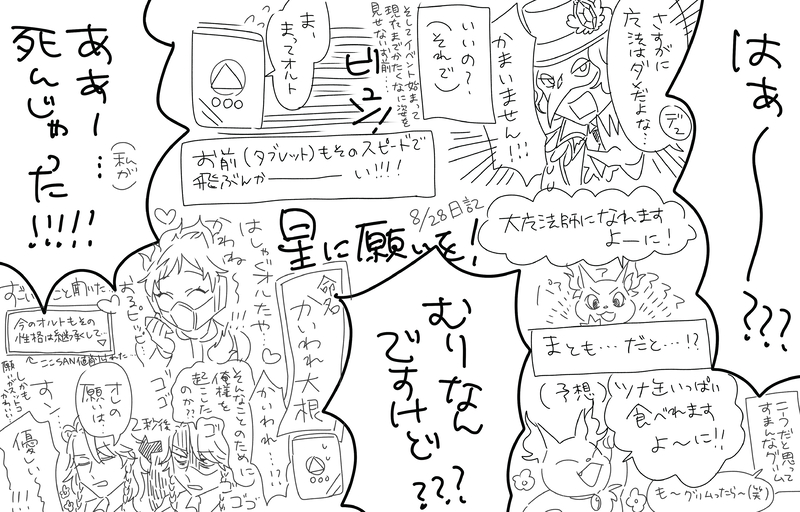 はぁ〜〜???
さすがに
方法はダメだよな…
デュ
かまいません!!!
いいの?
(それで)
そしてイベント始まって
現れるまでかたくなに姿を
見せないお前…
ビュン!
ま、
まって オルト
お前(タブレット)もそのスピードで
飛ぶんか――い!!!!
8/28日記
星に願いを!
大魔法師になれます
よーに!
まとも…だと…!?
(予想)
ツナ缶いっぱい
食べれます
よ〜に!!
こうだと思って
すまんなグリム
も〜グリムったら〜(笑)
むりなん
ですけど
???
あぁー…
死んじゃった!!!!!
(私が)
はしゃぐオルたや…
かわゎね
おるピッピ…
命名
かいわれ大根
かいわれ…!?
ずーいこと聞いた
今のオルトもその
性格は継承して…
↑ここSAN値直葬された…
しかも
オレの
願いは…
優しい…!!!
2秒後
そんなことのために
俺様を
起こしたのか?!
ゴゴ
ゴゴ